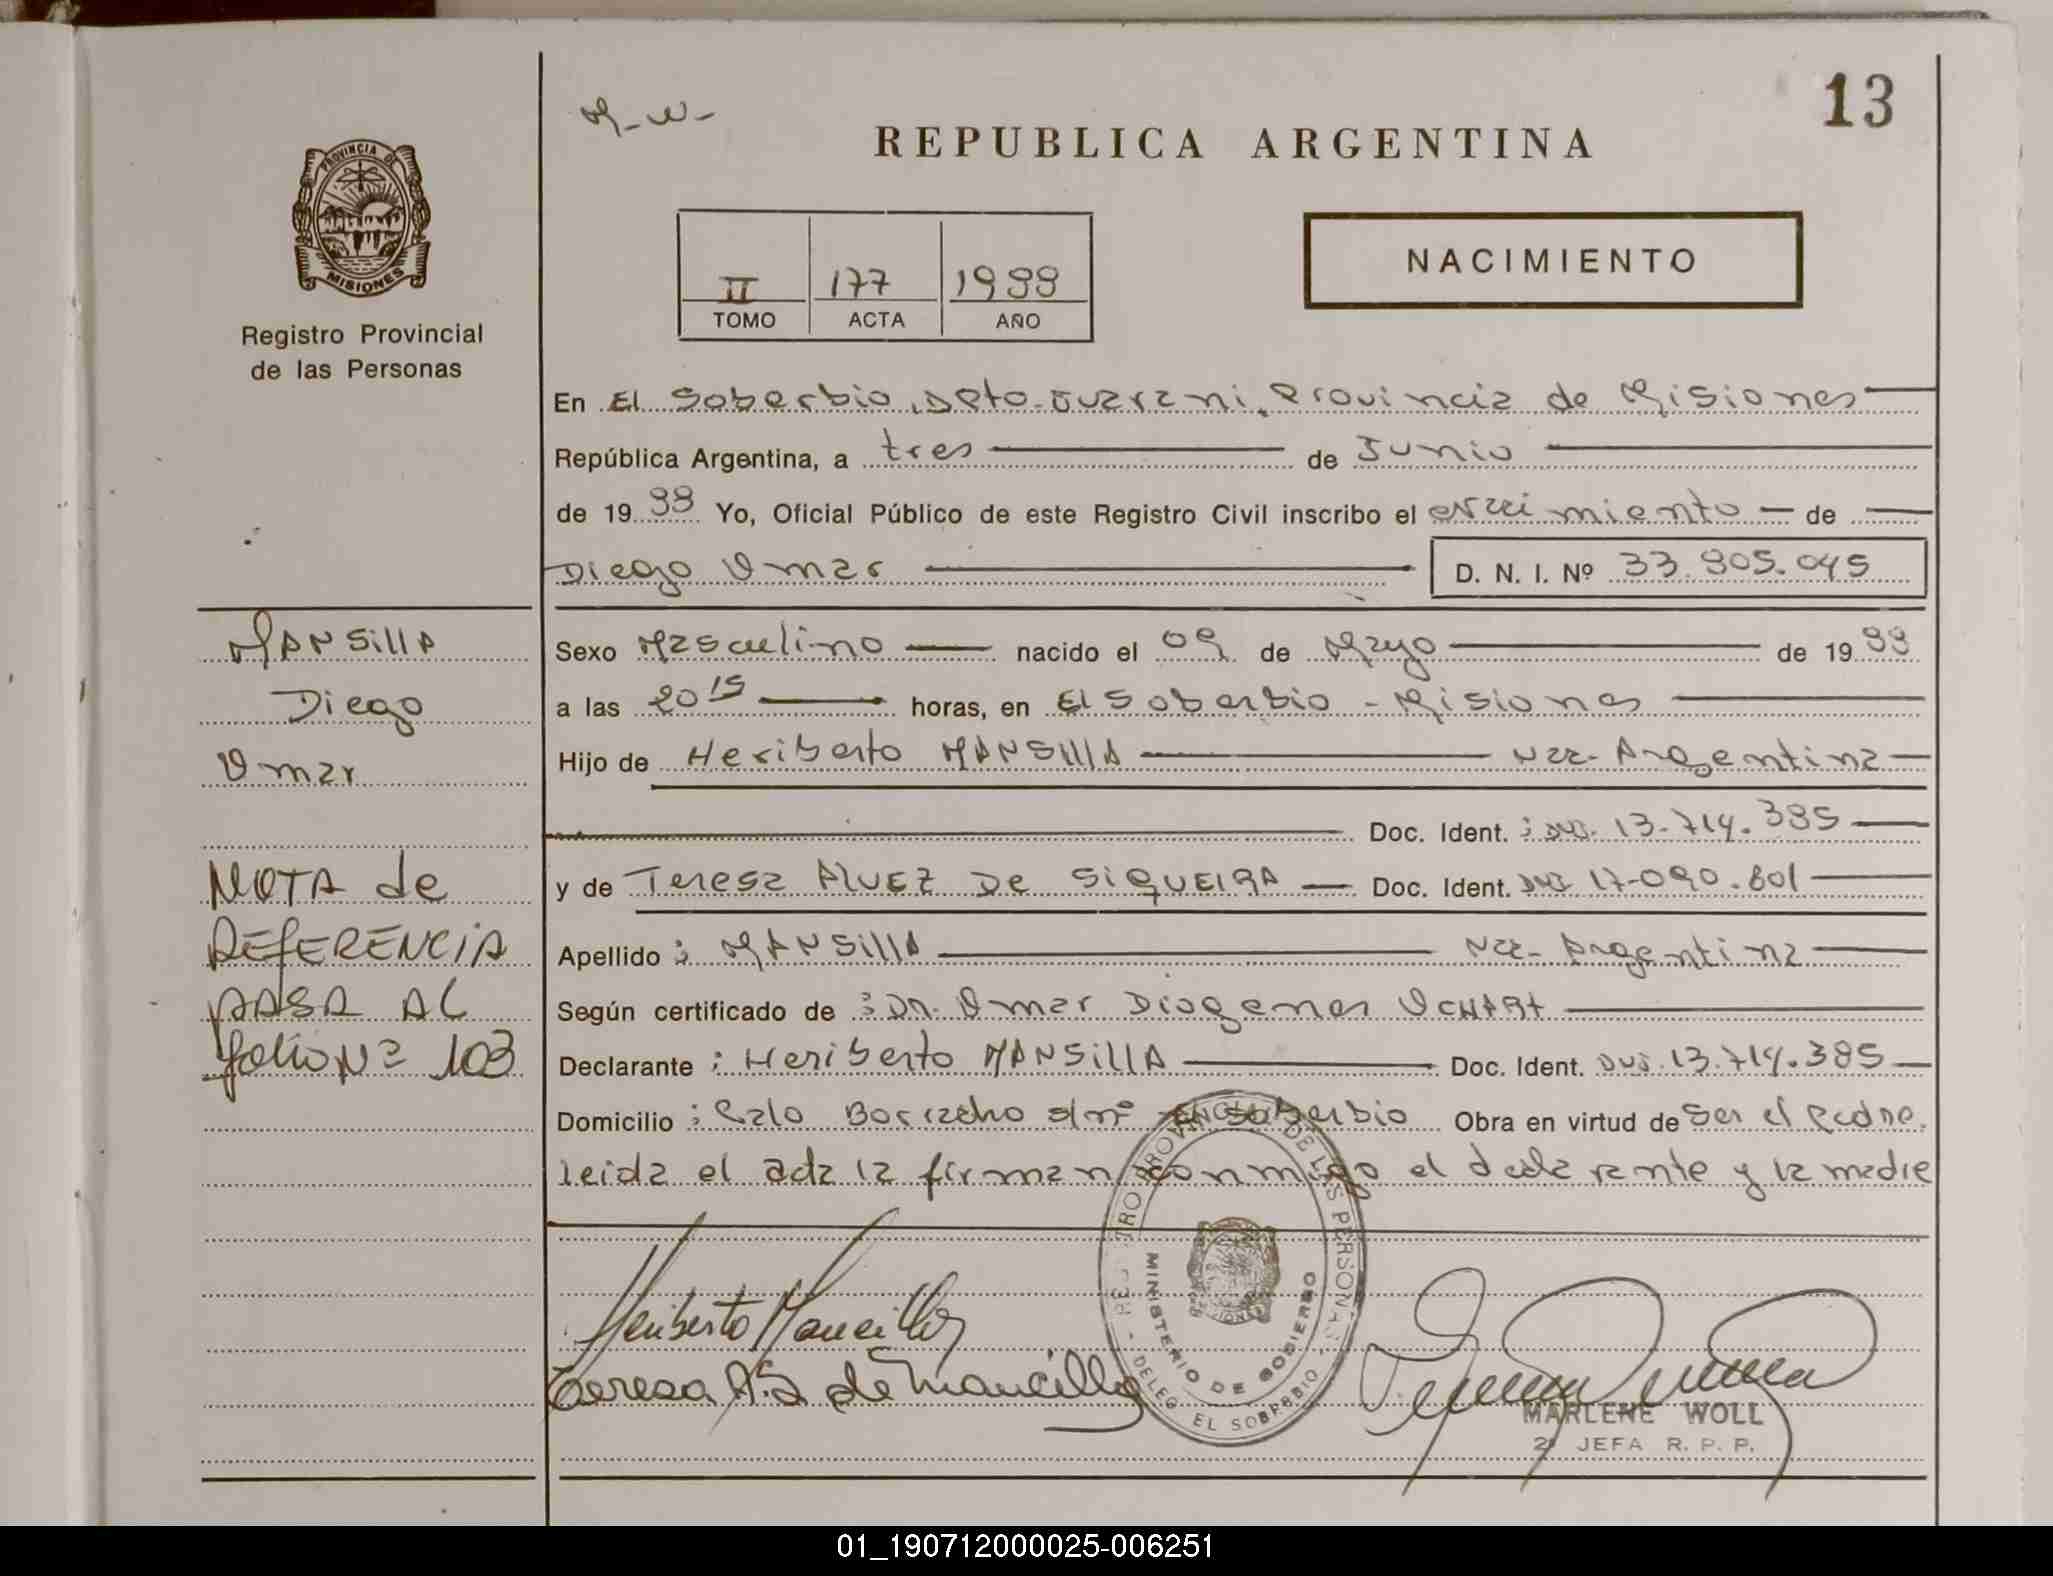 13
M-W-
REPUBLICA ARGENTINA
PROVINCIA DE
MISIONES
Registro Provincial
de las Personas
II 177 1988
TOMO ACTA AÑO
NACIMIENTO
En El Soberbio, Dpto. Guarani, Provincia de Misiones
República Argentina, a tres de Junio
de 1988 Yo, Oficial Público de este Registro Civil inscribo el Nacimiento de
Diego Omar D. N. I. Nº 33.805.045
MANSillA
Diego
Omar
NOTA de
REfERENCiA
PASA AL
folio Nº 103
Sexo Masculino nacido el 09 de Mayo de 1988
a las 20 15 horas, en El Soberbio - Misiones
Hijo de Heriberto MANSillA Nac- Argentina
Doc. Ident. : DNI. 13.714.385
y de Teresa AlVEZ De SiQUEIRA Doc. Ident. DNI 17-090.601
Apellido : MANSillA Nac- Argentina
Según certificado de : Dr. Omar Diogenes OCHART
Declarante : Heriberto MANSillA Doc. Ident. DNI. 13.714.385
Domicilio : Palo Borracho s/nº - El Soberbio Obra en virtud de Ser el Padre.
Leida el acta la firman conmigo el declarante y la madre
Heriberto Mancilla
Teresa A.S de Mancilla
REGISTRO PROVINCIAL DE LAS PERSONAS - DELEG. EL SOBERBIO -
MINISTERIO DE GOBIERNO
MARLENE WOLL
2º JEFA R. P. P.
01_190712000025-006251